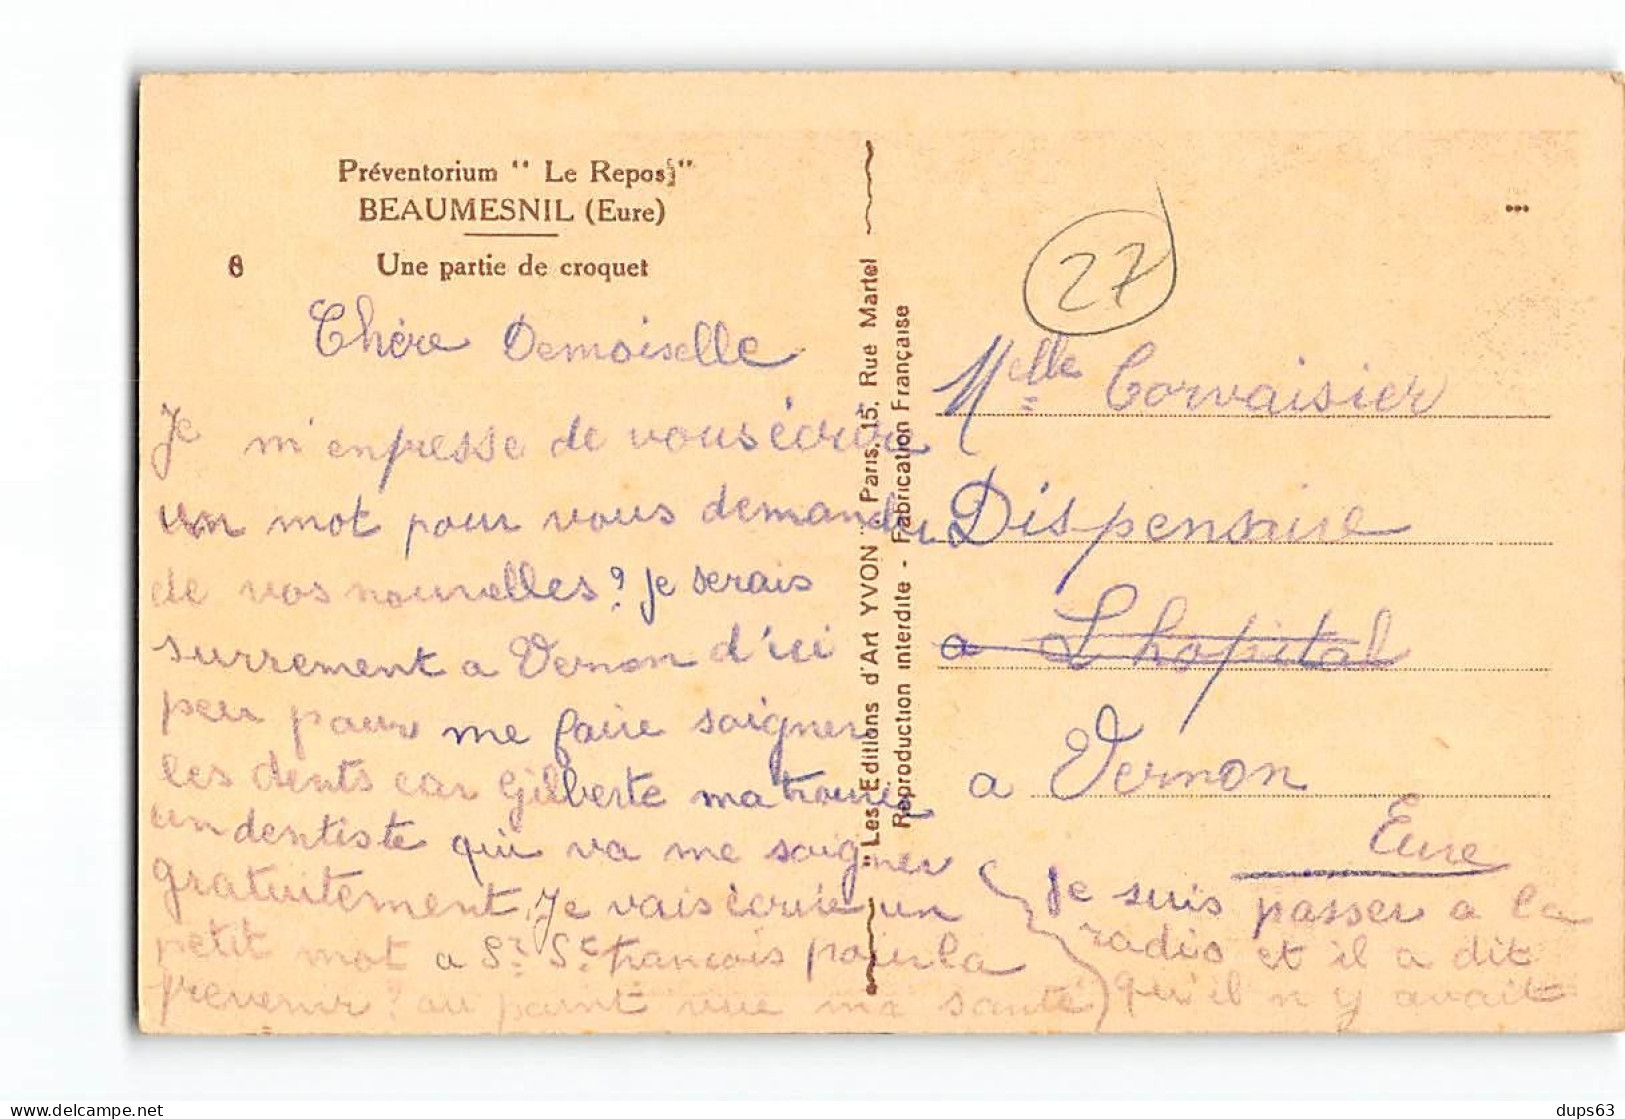 Préventorium " Le Repos "
BEAUMESNIL (Eure)
6 Une partie de croquet
Chère Demoiselle
Je m'enpresse de vous écrire
un mot pour vous demander
de vos nouvelles? je serais
surrement a Vernon d'ici
peu pour me faire soigner
les dents car Gilberte ma trouvée
un dentiste qui va me soigner
gratuitement, Je vais écrire un
petit mot a Sr. St. francois pour la
prevenir? au point vue ma santé
je suis passer a la
radio et il a dit
qu'il n y avait
"Les Editions d'Art YVON" - Paris, 15, Rue Martel
Reproduction interdite - Fabrication Française
27
Melle Corvaisier
Dispensaire
a L hopital
a Vernon
Eure
dups63
delcampe.net